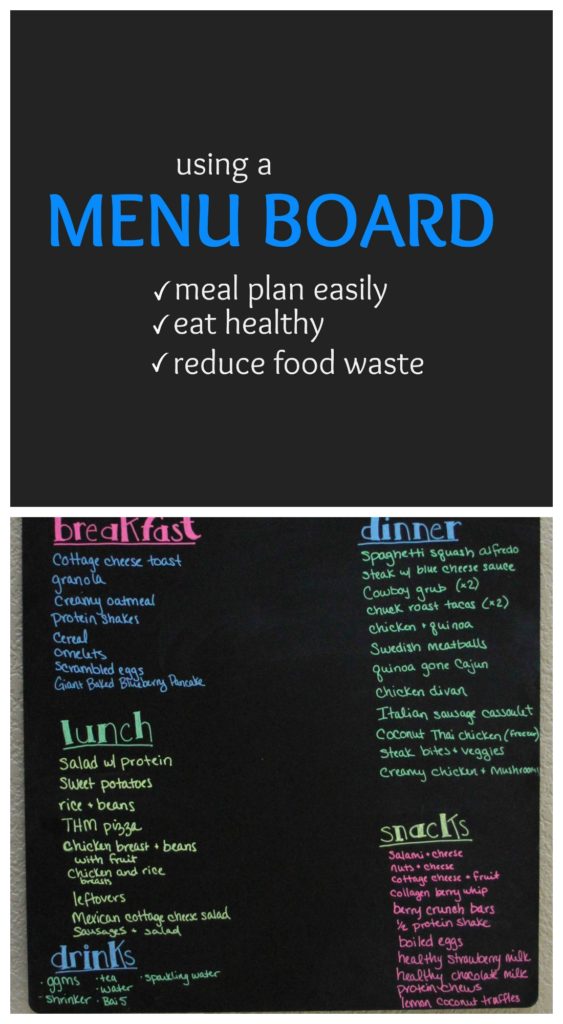 using a
MENU BOARD
✓meal plan easily
✓eat healthy
✓reduce food waste
breakfast
Cottage cheese toast
granola
Creamy oatmeal
protein shakes
Cereal
omelets
Scrambled eggs
Giant Baked Blueberry Pancake
lunch
Salad w/ protein
Sweet potatoes
rice + beans
THM pizza
chicken breast + beans
with fruit
Chicken and rice
breasts
leftovers
Mexican cottage cheese salad
Sausages + salad
drinks
· ggms · tea · sparkling water
· water
· shrinker · Bai 5
dinner
Spaghetti squash alfredo
Steak w/ blue cheese sauce
Cowboy grub (x2)
chuck roast tacos (x2)
chicken + quinoa
Swedish meatballs
quinoa gone Cajun
chicken divan
Italian sausage cassoulet
Coconut Thai chicken (freezer)
Steak bites + veggies
Creamy chicken + mushroom
snacks
Salami + cheese
nuts + cheese
cottage cheese + fruit
collagen berry whip
berry crunch bars
1/2 protein shake
boiled eggs
healthy strawberry milk
healthy chocolate milk
protein chews
lemon coconut truffles